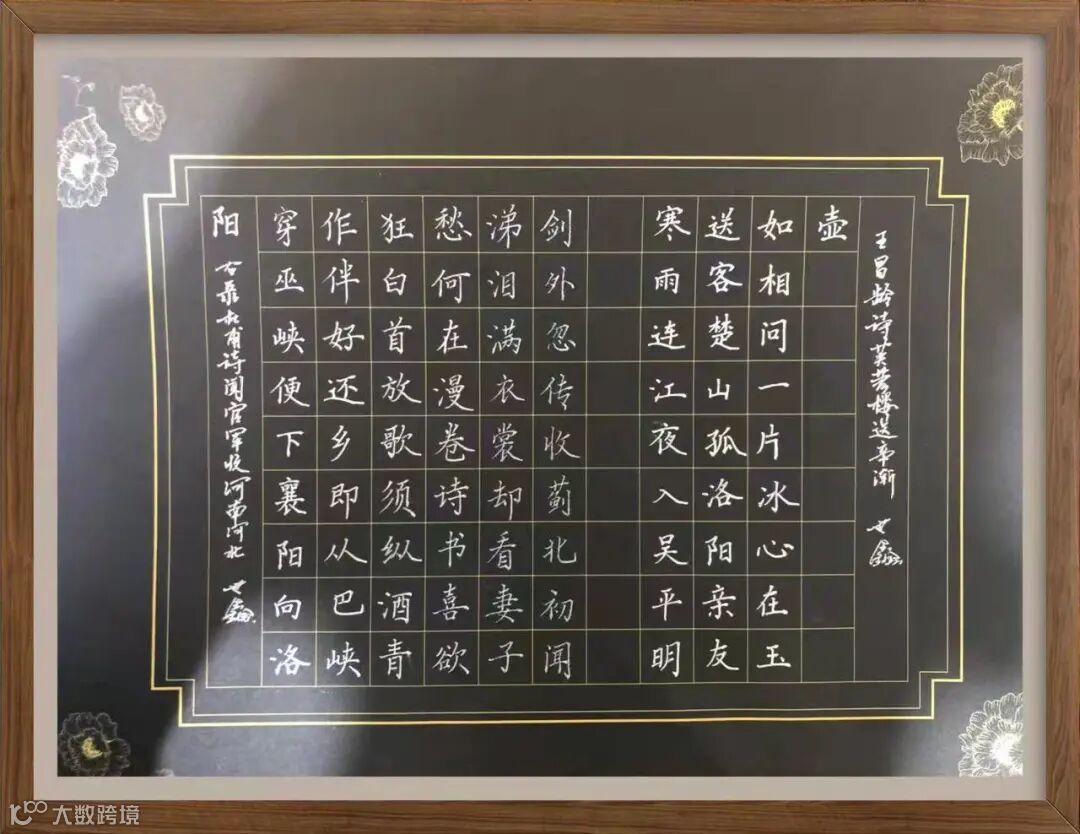 寒雨连江夜入吴平明
送客楚山孤洛阳亲友
如相问一片冰心在玉
壶
王昌龄诗芙蓉楼送辛渐
剑外忽传收蓟北初闻
涕泪满衣裳却看妻子
愁何在漫卷诗书喜欲
狂白首放歌须纵酒青
作伴好还乡即从巴峡
穿巫峡便下襄阳向洛
阳
右录杜甫诗闻官军收河南河北
大数跨境